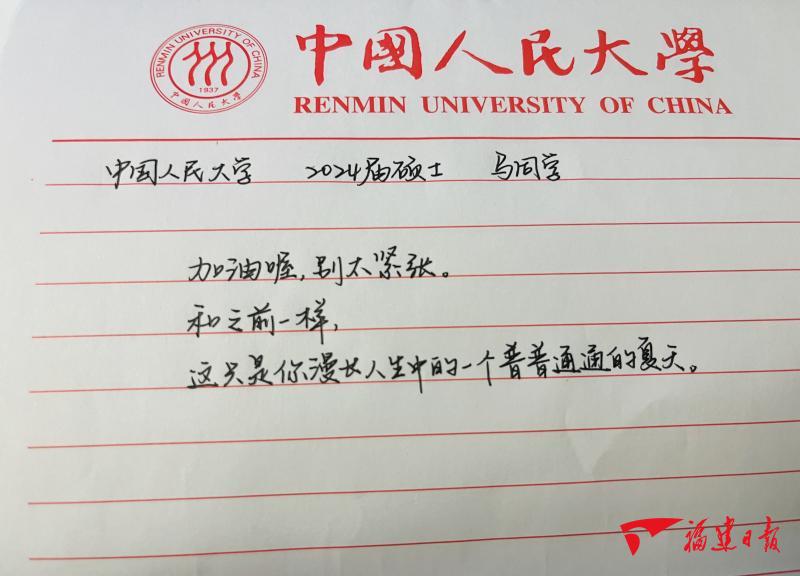 RENMIN UNIVERSITY OF CHINA
1937
中国人民大学
中國人民大學
RENMIN UNIVERSITY OF CHINA
中国人民大学 2024届硕士 马同学
加油喔,别太紧张。
和之前一样,
这只是你漫长人生中的一个普普通通的夏天。
福建日报